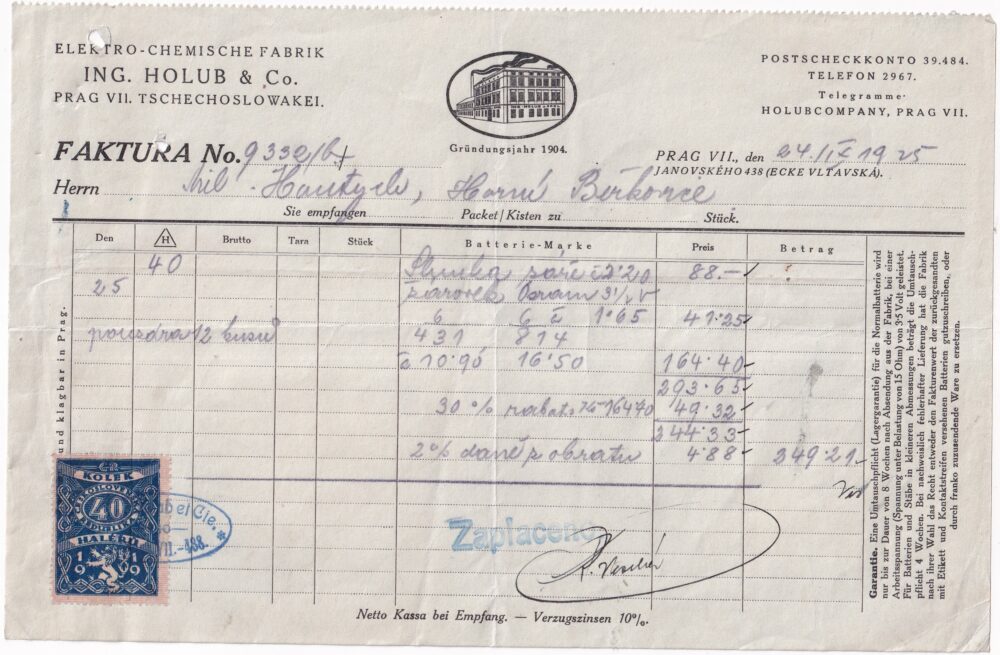 ELEKTRO-CHEMISCHE FABRIK
ING. HOLUB & Co.
PRAG VII. TSCHECHOSLOWAKEI.
Gründungsjahr 1904.
POSTSCHECKKONTO 39.484.
TELEFON 2967.
Telegramme:
HOLUBCOMPANY, PRAG VII.
FAKTURA No. 9332/b
PRAG VII., den 24./IX 1925
JANOVSKÉHO 438 (ECKE VLTAVSKÁ).
Herrn Horní Beřkovice
Sie empfangen Packet/Kisten zu Stück.
Den H Brutto Tara Stück Batterie-Marke Preis Betrag
40 2·20 88.—
25 žárovek Osram 3½ V
6 6 1·65 41·25
pouzdra 12 kusů 431 814
à 10·90 16·50 164·40
293·65
30% rabat 16470 49·32
244·33
2% daně z obratu 4·88 249·21
Zaplaceno
Netto Kassa bei Empfang. — Verzugszinsen 10%.
und klagbar in Prag.
KOLEK
40
HALÉŘŮ
1919
Garantie. Eine Umtauschpflicht (Lagergarantie) für die Normalbatterie wird
nur bis zur Dauer von 8 Wochen nach Absendung aus der Fabrik, bei einer
Arbeitsspannung (Spannung unter Belastung von 15 Ohm) von 3·5 Volt geleistet.
Für Batterien und Stäbe in kleineren Abmessungen beträgt die Umtausch-
pflicht 4 Wochen. Bei nachweislich fehlerhafter Lieferung hat die Fabrik
nach ihrer Wahl das Recht entweder den Fakturenwert der zurückgesandten
mit Etikett und Kontaktstreifen versehenen Batterien gutzuschreiben, oder
durch franko zuzusendende Ware zu ersetzen.